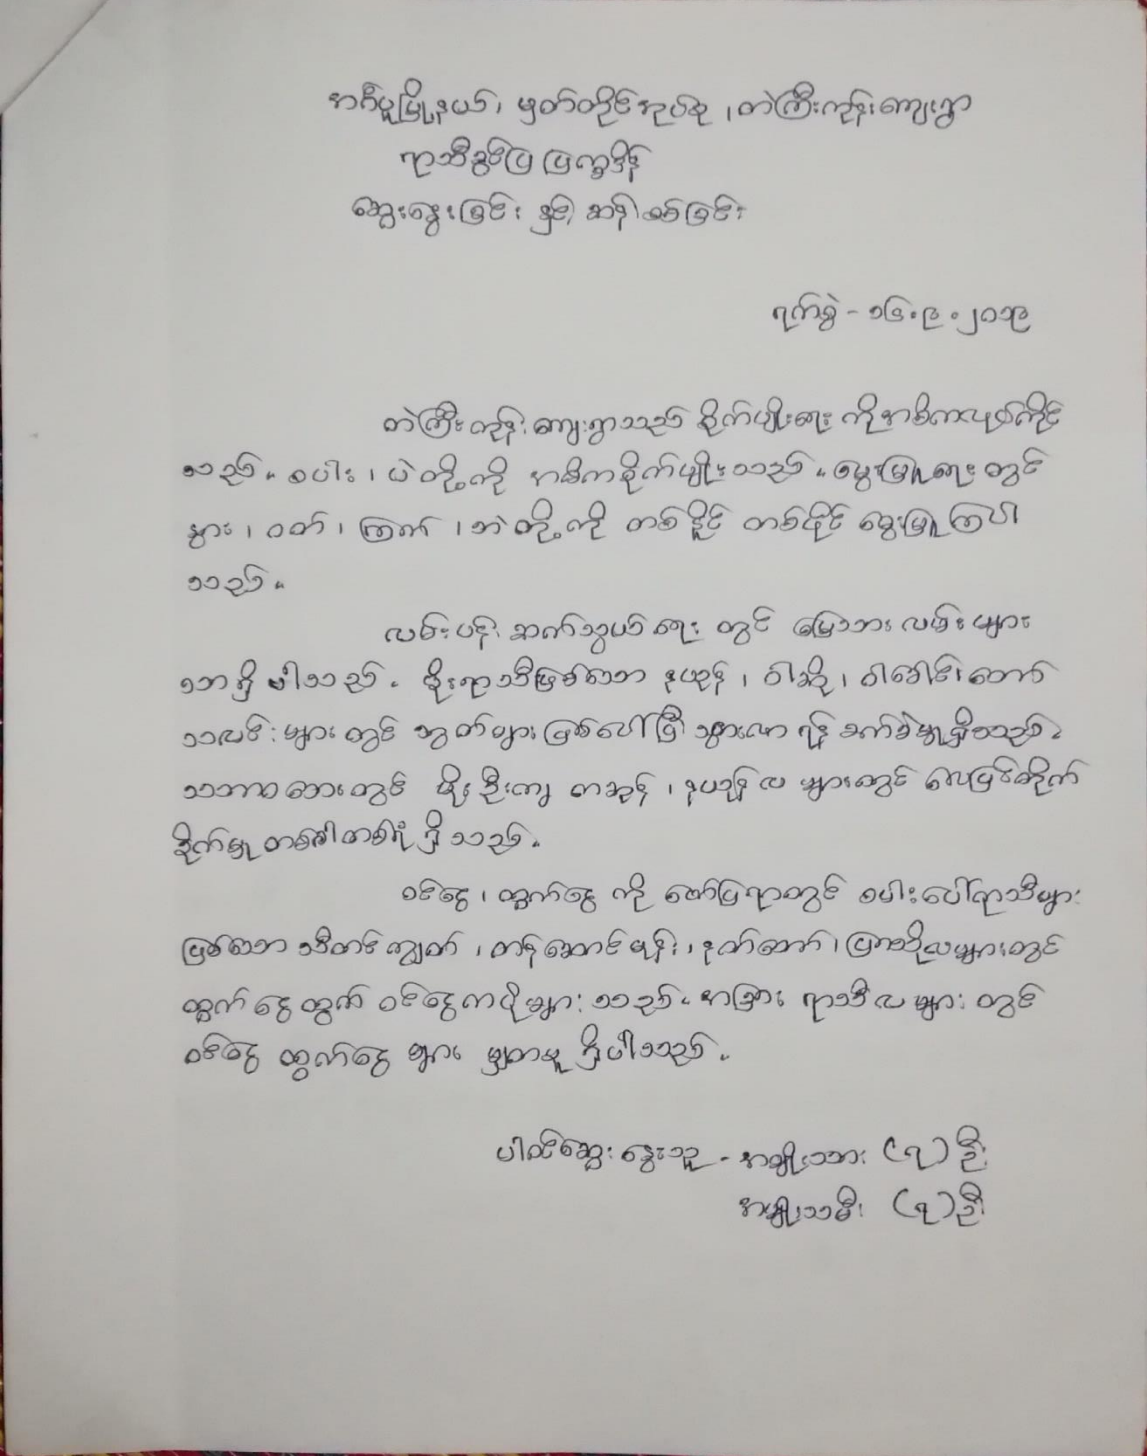 အင်္ဂပူမြို့နယ်၊ မှတ်တိုင်အုပ်စု ၊ တဲကြီးကုန်းကျေးရွာ
ရာသီခွင်ပြ ပြက္ခဒိန်
ဆွေးနွေးခြင်း နှင့် ဆန်းစစ်ခြင်း
ရက်စွဲ - ၁၆.၉.၂၀၁၉
တဲကြီးကုန်းကျေးရွာသည် စိုက်ပျိုးရေး ကိုအဓိကလုပ်ကိုင်
သည်။ စပါး ၊ ပဲတို့ကို အဓိကစိုက်ပျိုးသည်။ မွေးမြူရေး တွင်
နွား ၊ ဝက် ၊ ကြက် ၊ ဘဲတို့ကို တစ်နိုင် တစ်ပိုင် မွေးမြူကြပါ
သည်။
လမ်းပန်း ဆက်သွယ်ရေး တွင် မြေသားလမ်း များ
သာရှိ ပါသည်။ မိုးရာသီဖြစ်သော နယုန် ၊ ဝါဆို ၊ ဝါခေါင်၊ တော်
သလင်းများ တွင် ဗွက်များ ဖြစ်ပေါ်ပြီး သွားလာ ရန် ခက်ခဲမှုရှိသည်။
သဘာဝဘေးတွင် မိုးဦးကျ ကဆုန် ၊ နယုန် လ များတွင် လေပြင်းတိုက်
ခိုက်မှု တစ်ခါတစ်ရံ ရှိသည်။
ဝင်ငွေ ၊ ထွက်ငွေ ကို ဖော်ပြရာတွင် စပါးပေါ်ရာသီများ
ဖြစ်သော သီတင်းကျွတ် ၊ တန်ဆောင်မုန်း ၊ နတ်တော် ၊ ပြာသိုလများတွင်
ထွက်ငွေထွက် ဝင်ငွေကပိုများ သည်။ အခြား ရာသီလ များ တွင်
ဝင်ငွေ ထွက်ငွေ များ မျှတမှု ရှိပါသည်။
ပါဝင်ဆွေးနွေးသူ - အမျိုးသား (၇) ဦး
အမျိုးသမီး (၇) ဦး